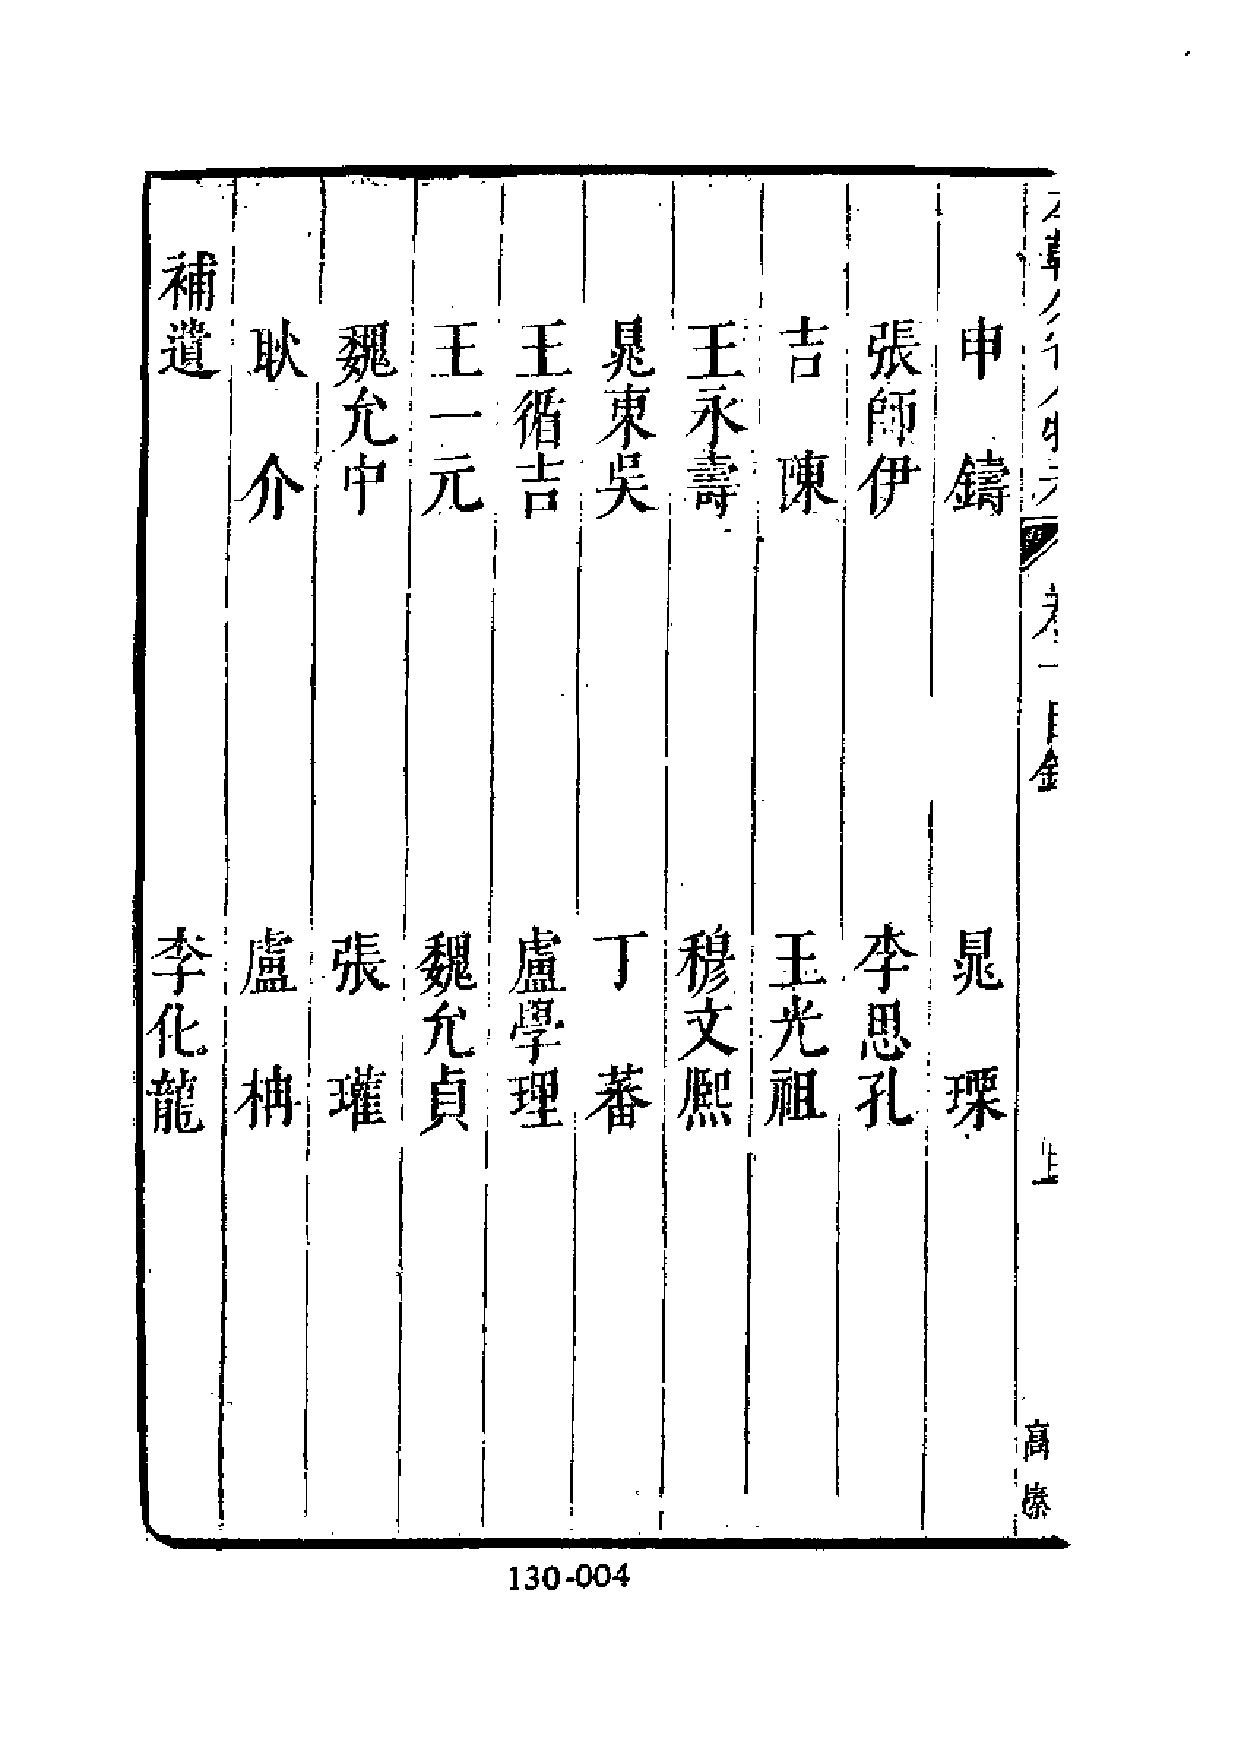 申鑄 晁瑮
張師伊 李思孔
吉陳 王光祖
王永壽 穆文熙
晁東吳 丁蕃
王循吉 盧學理
王一元 魏允貞
魏允中 張瓘
耿介 盧柟
補遺 李化龍
130-004